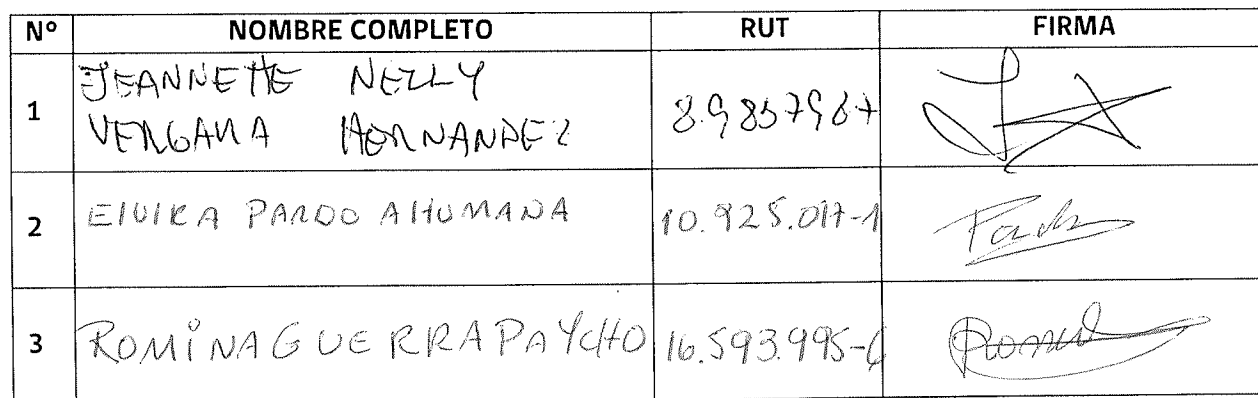 Nº NOMBRE COMPLETO RUT FIRMA
1 JEANNETTE NELLY
VERGARA HERNANDEZ 8.9857967
2 ElVIRA PARDO AHUMADA 10.925.017-1 Pardo
3 ROMINA GUERRA PAYCHO 16.593.995-6